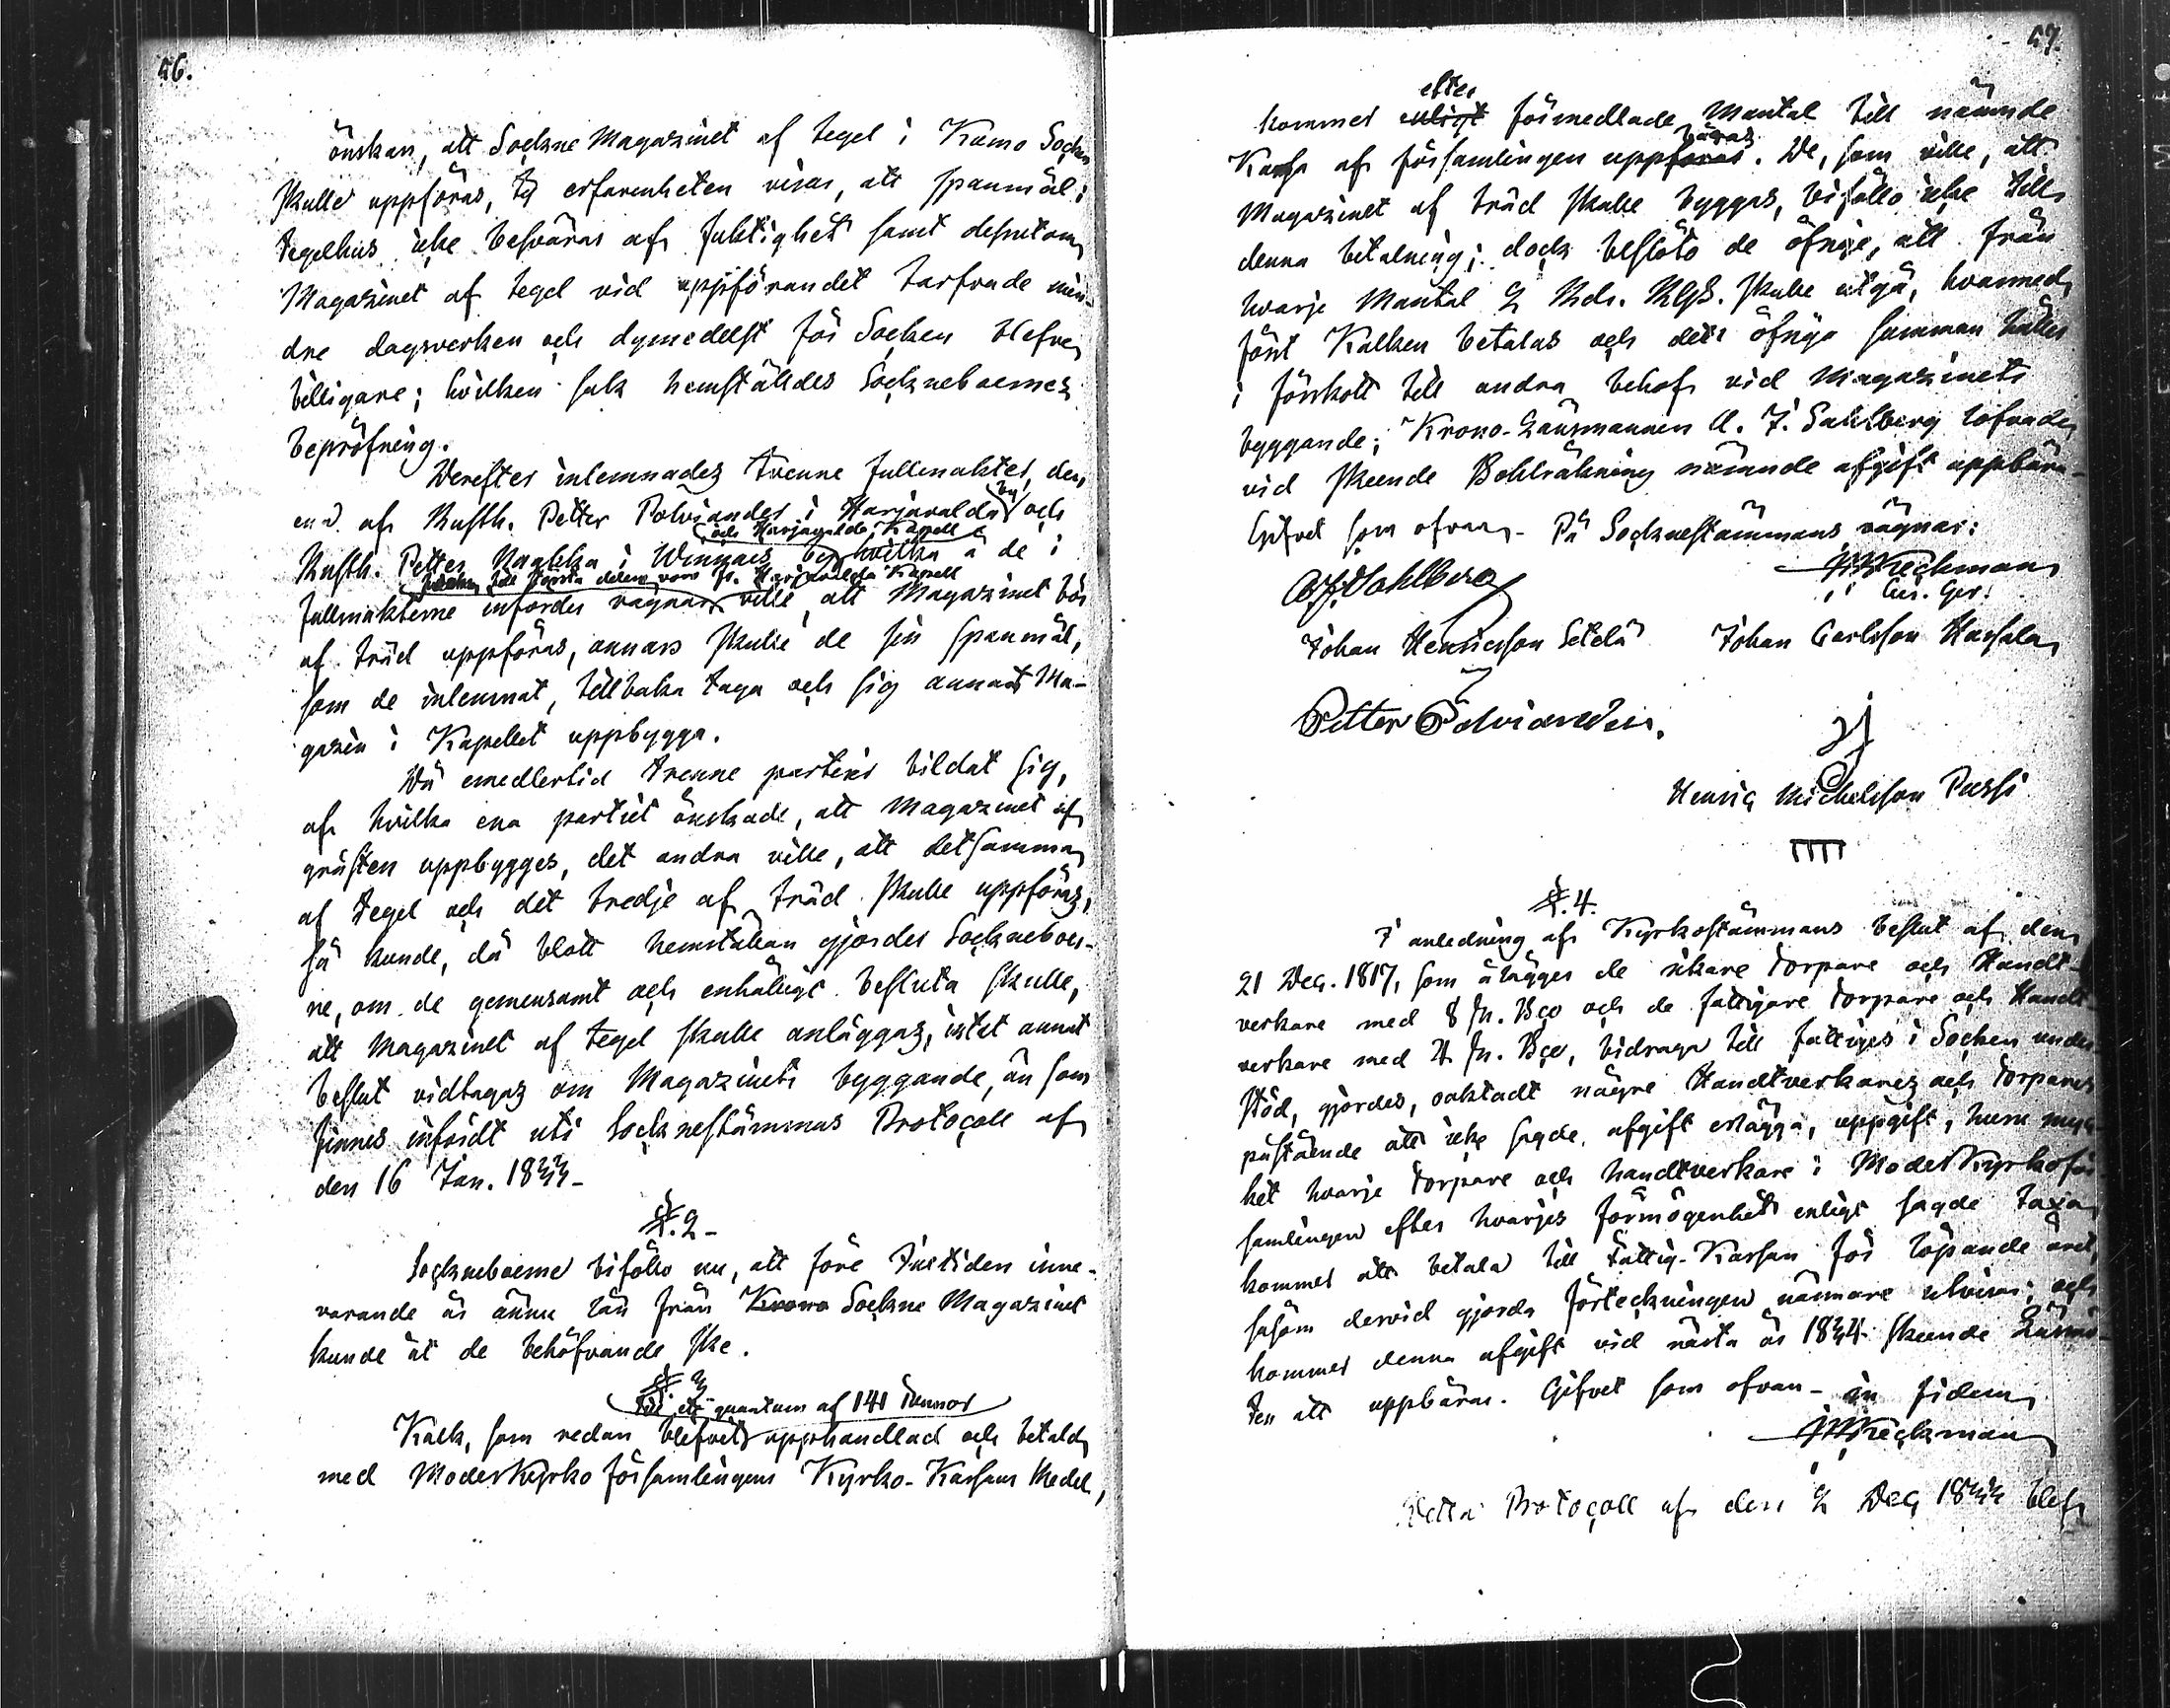 56.
önskan, att Sockne Magazinet af tegel i Kumo Socken
skulle uppföras, ty erfarenheten visar, att spanmål i
tegelhus icke besväras af fuktighet samt dessutom
Magazinet af tegel vid uppförandet tarfvade min-
dre dagsverken och dymedelst för Socken blefve
billigare; hvilken sak hemställdes Sockneboernes
bepröfning.
Derefter inlemnades tvenne fullmakter, den
ena af Rusth. Petter Polviander i Harjavalda by och
och Harjavalda Kapell
Rusth. Petter Naukka i Winnais by hvilka å de i
socken till största delen vore fr. Harjavalda Kapell
fullmakterne införder vägnar ville, att Magazinet bör
af träd uppföras, annars skulle de sin spanmål,
som de inlemnat, tillbaka taga och sig annat Ma-
gazin i Kapellet uppbygga.
Då emedlertid trenne partier bildat sig,
af hvilka ena partiet önskade, att Magazinet af
gråsten uppbygges, det andra ville, att detsamma
af tegel och det tredje af träd skulle uppföras,
så kunde, då blott hemställan gjordes Sockneboer-
ne, om de gemensamt och enhälligt besluta skulle,
att Magazinet af tegel skulle anläggas, intet annat
beslut vidtagas om Magazinets byggande, än som
finnes infördt uti Socknestämmas Protocoll af
den 16 Jan. 1833-
§. 2-
Socknebоerne biföllo nu, att före Jultiden inne-
varande år ännu lån från Krono Sockne Magazinet
kunde åt de behöfvande ske.
§. 3-
till ett quantum af 141 Tunnor
Kalk, som redan blefvit upphandlad och betald
med Moderkyrko församlingens Kyrko-Kassans Medel,
57.
efter
kommer enligt förmedlade Mantal till nämnde
bäras
Kassa af församlingen uppföras. De, som ville, att
Magazinet af träd skulle byggas, biföllo icke till
denna betalning; dock beslöto de öfrige, att från
hvarje Mantal 2 Rdr. RGS. skulle utgå, hvarmed
först Kalken betalas och det öfriga summan hålles
i förskott till andra behof vid Magazinets
byggande; Krono-Länsmannen A. J. Sahlberg lofvade
vid skeende Bohlräkning nämnde afgift uppbära-
Gifvet som ofvan- På Socknestämmans vägnar:
A J Sahlberg
Johan Henricsson Setälä Johan Carlsson Hassala
Petter Polviander.
Henric Michelsson Passi
§. 4.
I anledning af Kyrkostämmans beslut af den
21 Dec. 1817, som ålägges de rikare Torpare och Handt-
verkare med 8 sk. Bco och de fattigare Torpare och Handt-
verkare med 4 sk. Bco, bidraga till fattiges i Socken under-
stöd, gjordes, oaktadt någre Handtverkares och Torpares
påstående att icke sagde afgift erlägga, uppgift, huru myc-
ket hvarje Torpare och handtverkare i Moderkyrkoför-
samlingen efter hvarjes förmögenhet enligt sagde taxa
kommer att betala till Fattig-Kassan för löpande året,
såsom dervid gjorda förteckningen närmare utvisar; och
kommer denna afgift vid nästa år 1834 skeende Läsmö-
ten att uppbäras. Gifvet som ofvan- in fidem
Detta Protocoll af den 2 Dec 1833 blef